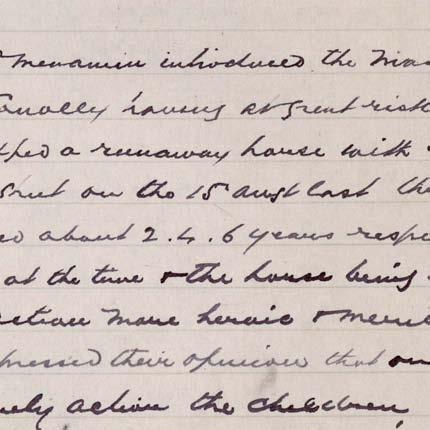 Menamin introduced the
Conolly having at great risk
pped a runaway horse with
on the 15 augt last the
ed about 2.4.6 years respe
at the time & the horse being
action more heroic & meri
pressed their opinion that
ely action the children,